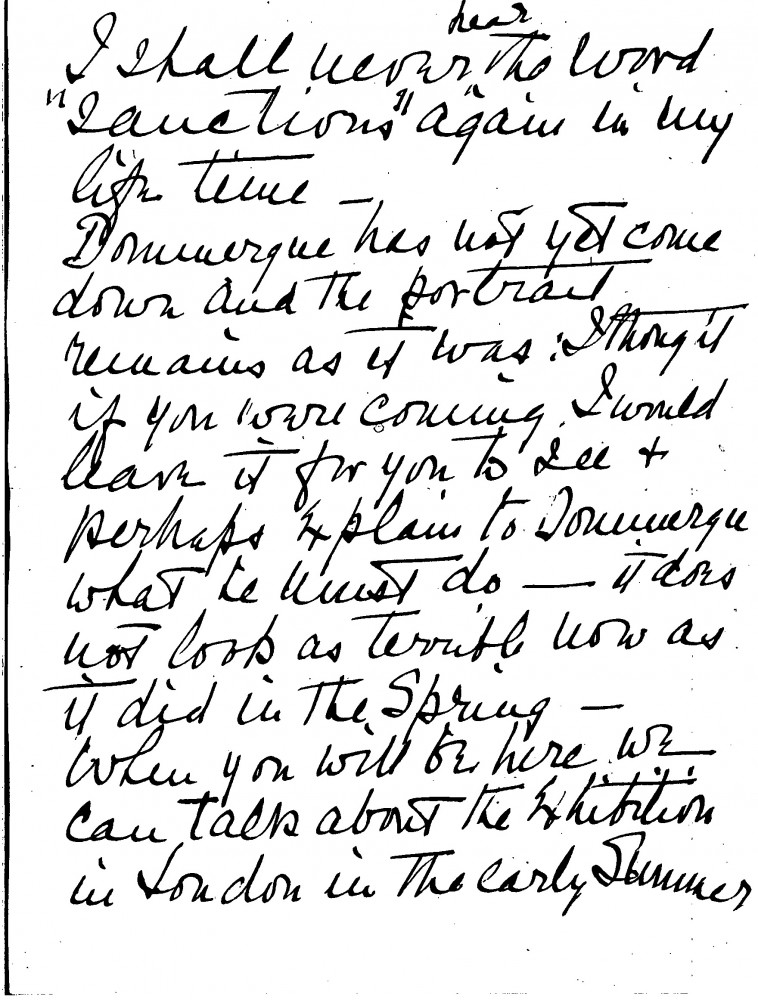 hear
I shall never the word
"Sanctions" again in my
life time —
Dommergue has not yet come
down and the portrait
remains as it was: I thought
if you were coming I would
leave it for you to see +
perhaps explain to Dommergue
what he must do — it does
not look as terrible now as
it did in the Spring —
When you will be here we
can talk about the Exhibition
in London in the early Summer